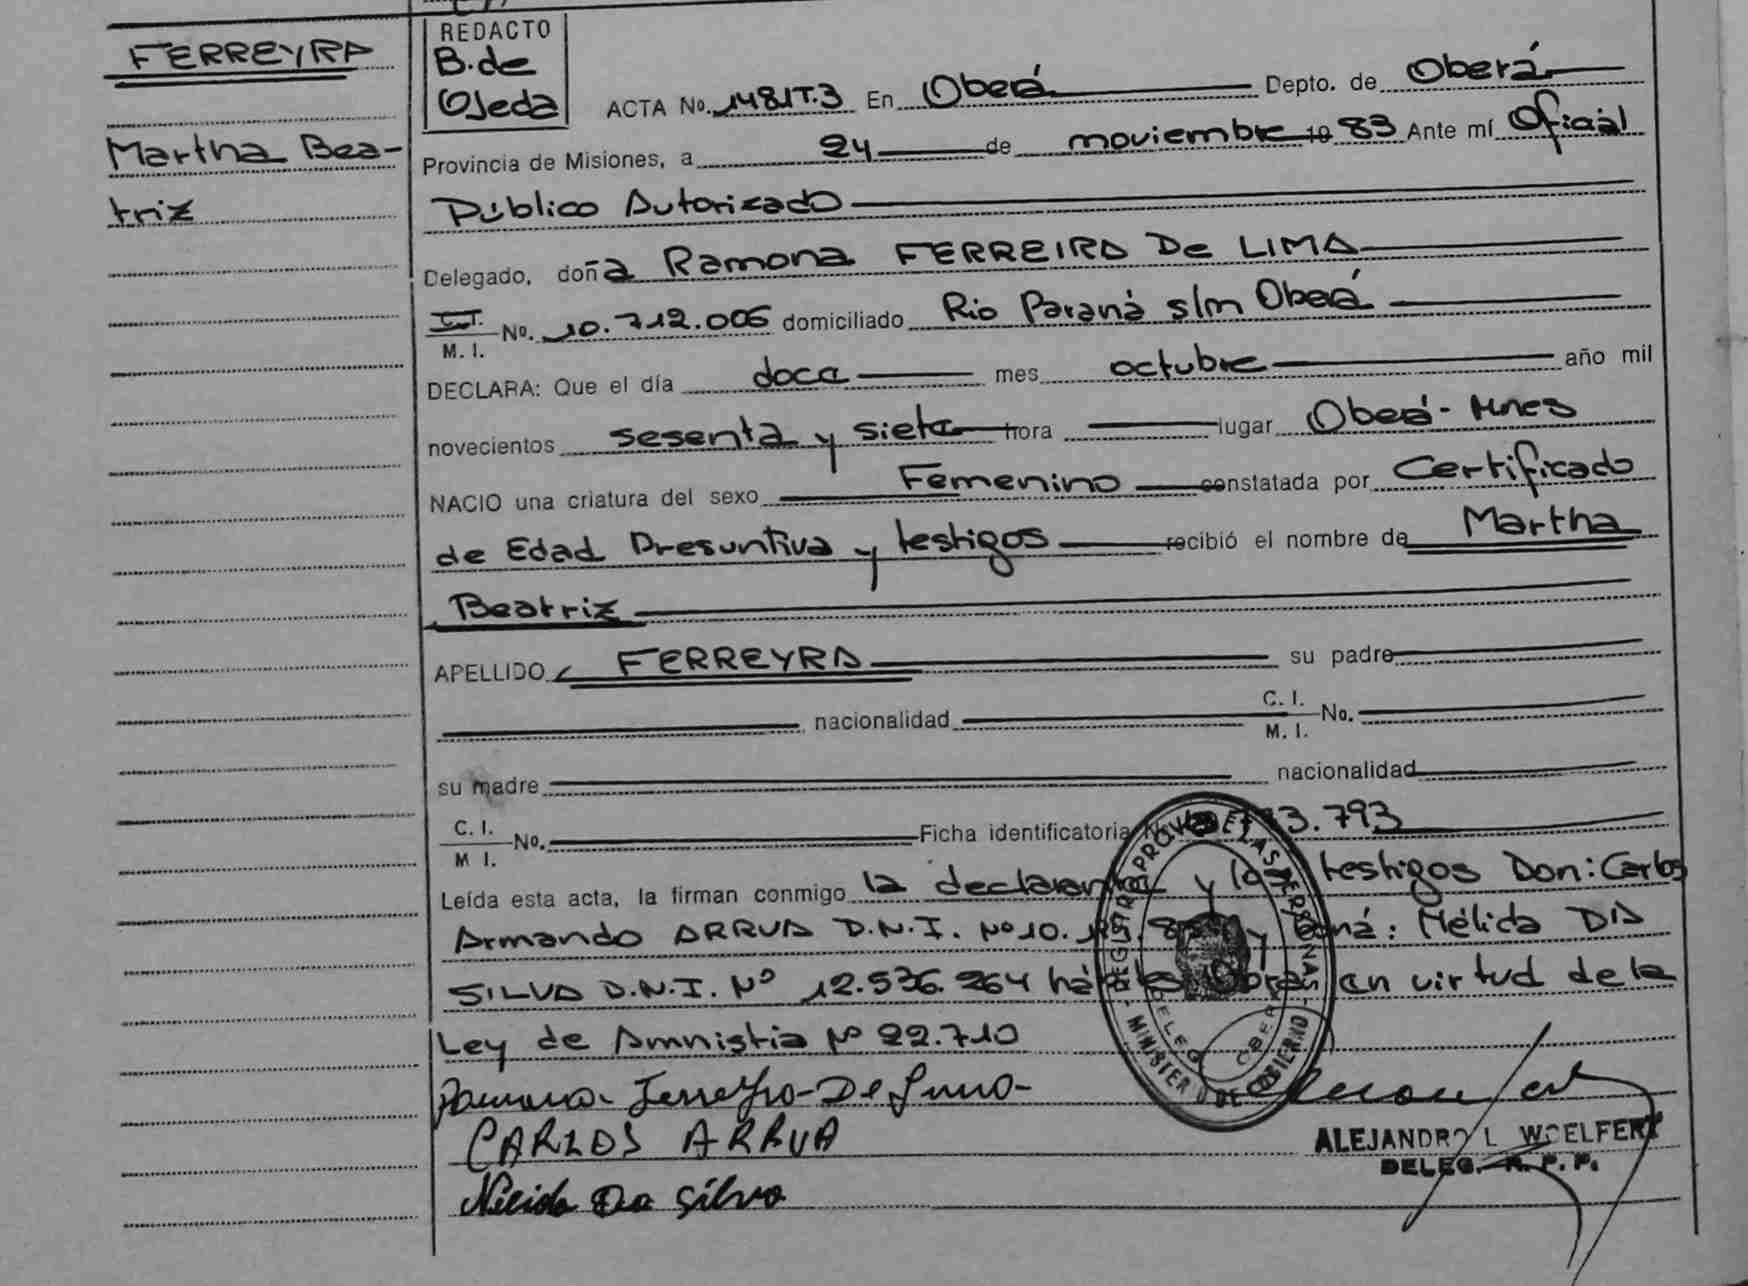 FERREYRA
Martha Bea-
triz
REDACTO
B. de
Ojeda
ACTA No. 1481T.3 En Oberá Depto. de Oberá
Provincia de Misiones, a 24 de noviembre 1983 Ante mí Oficial
Público Autorizado
Delegado, doña Ramona FERREIRA De LIMA
C.I. M. I. No. 10.712.006 domiciliado Rio Paraná s/n Oberá
DECLARA: Que el día doce mes octubre año mil
novecientos sesenta y siete hora lugar Oberá - Mnes
NACIO una criatura del sexo Femenino constatada por Certificado
de Edad Presuntiva y testigos recibió el nombre de Martha
Beatriz
APELLIDO FERREYRA su padre
nacionalidad C. I. M. I. No.
su madre nacionalidad
C. I. M I. No. Ficha identificatoria 793
Leída esta acta, la firman conmigo la declarante y los testigos Don: Carlos
Armando ARRUA D.N.I. Nº 10. y Doná: Nélida DA
SILVA D.N.I. Nº 12.536.264 en virtud de la
Ley de Amnistia Nº 22.710
REGISTRO PROV. DE LAS PERSONAS
MINISTERIO DE GOBIERNO
DELEG. OBERA
Ramona Ferreyra De Lima
CARLOS ARRUA
Nélida Da Silva
ALEJANDRO L WOELFERT
DELEG. R. P. P.